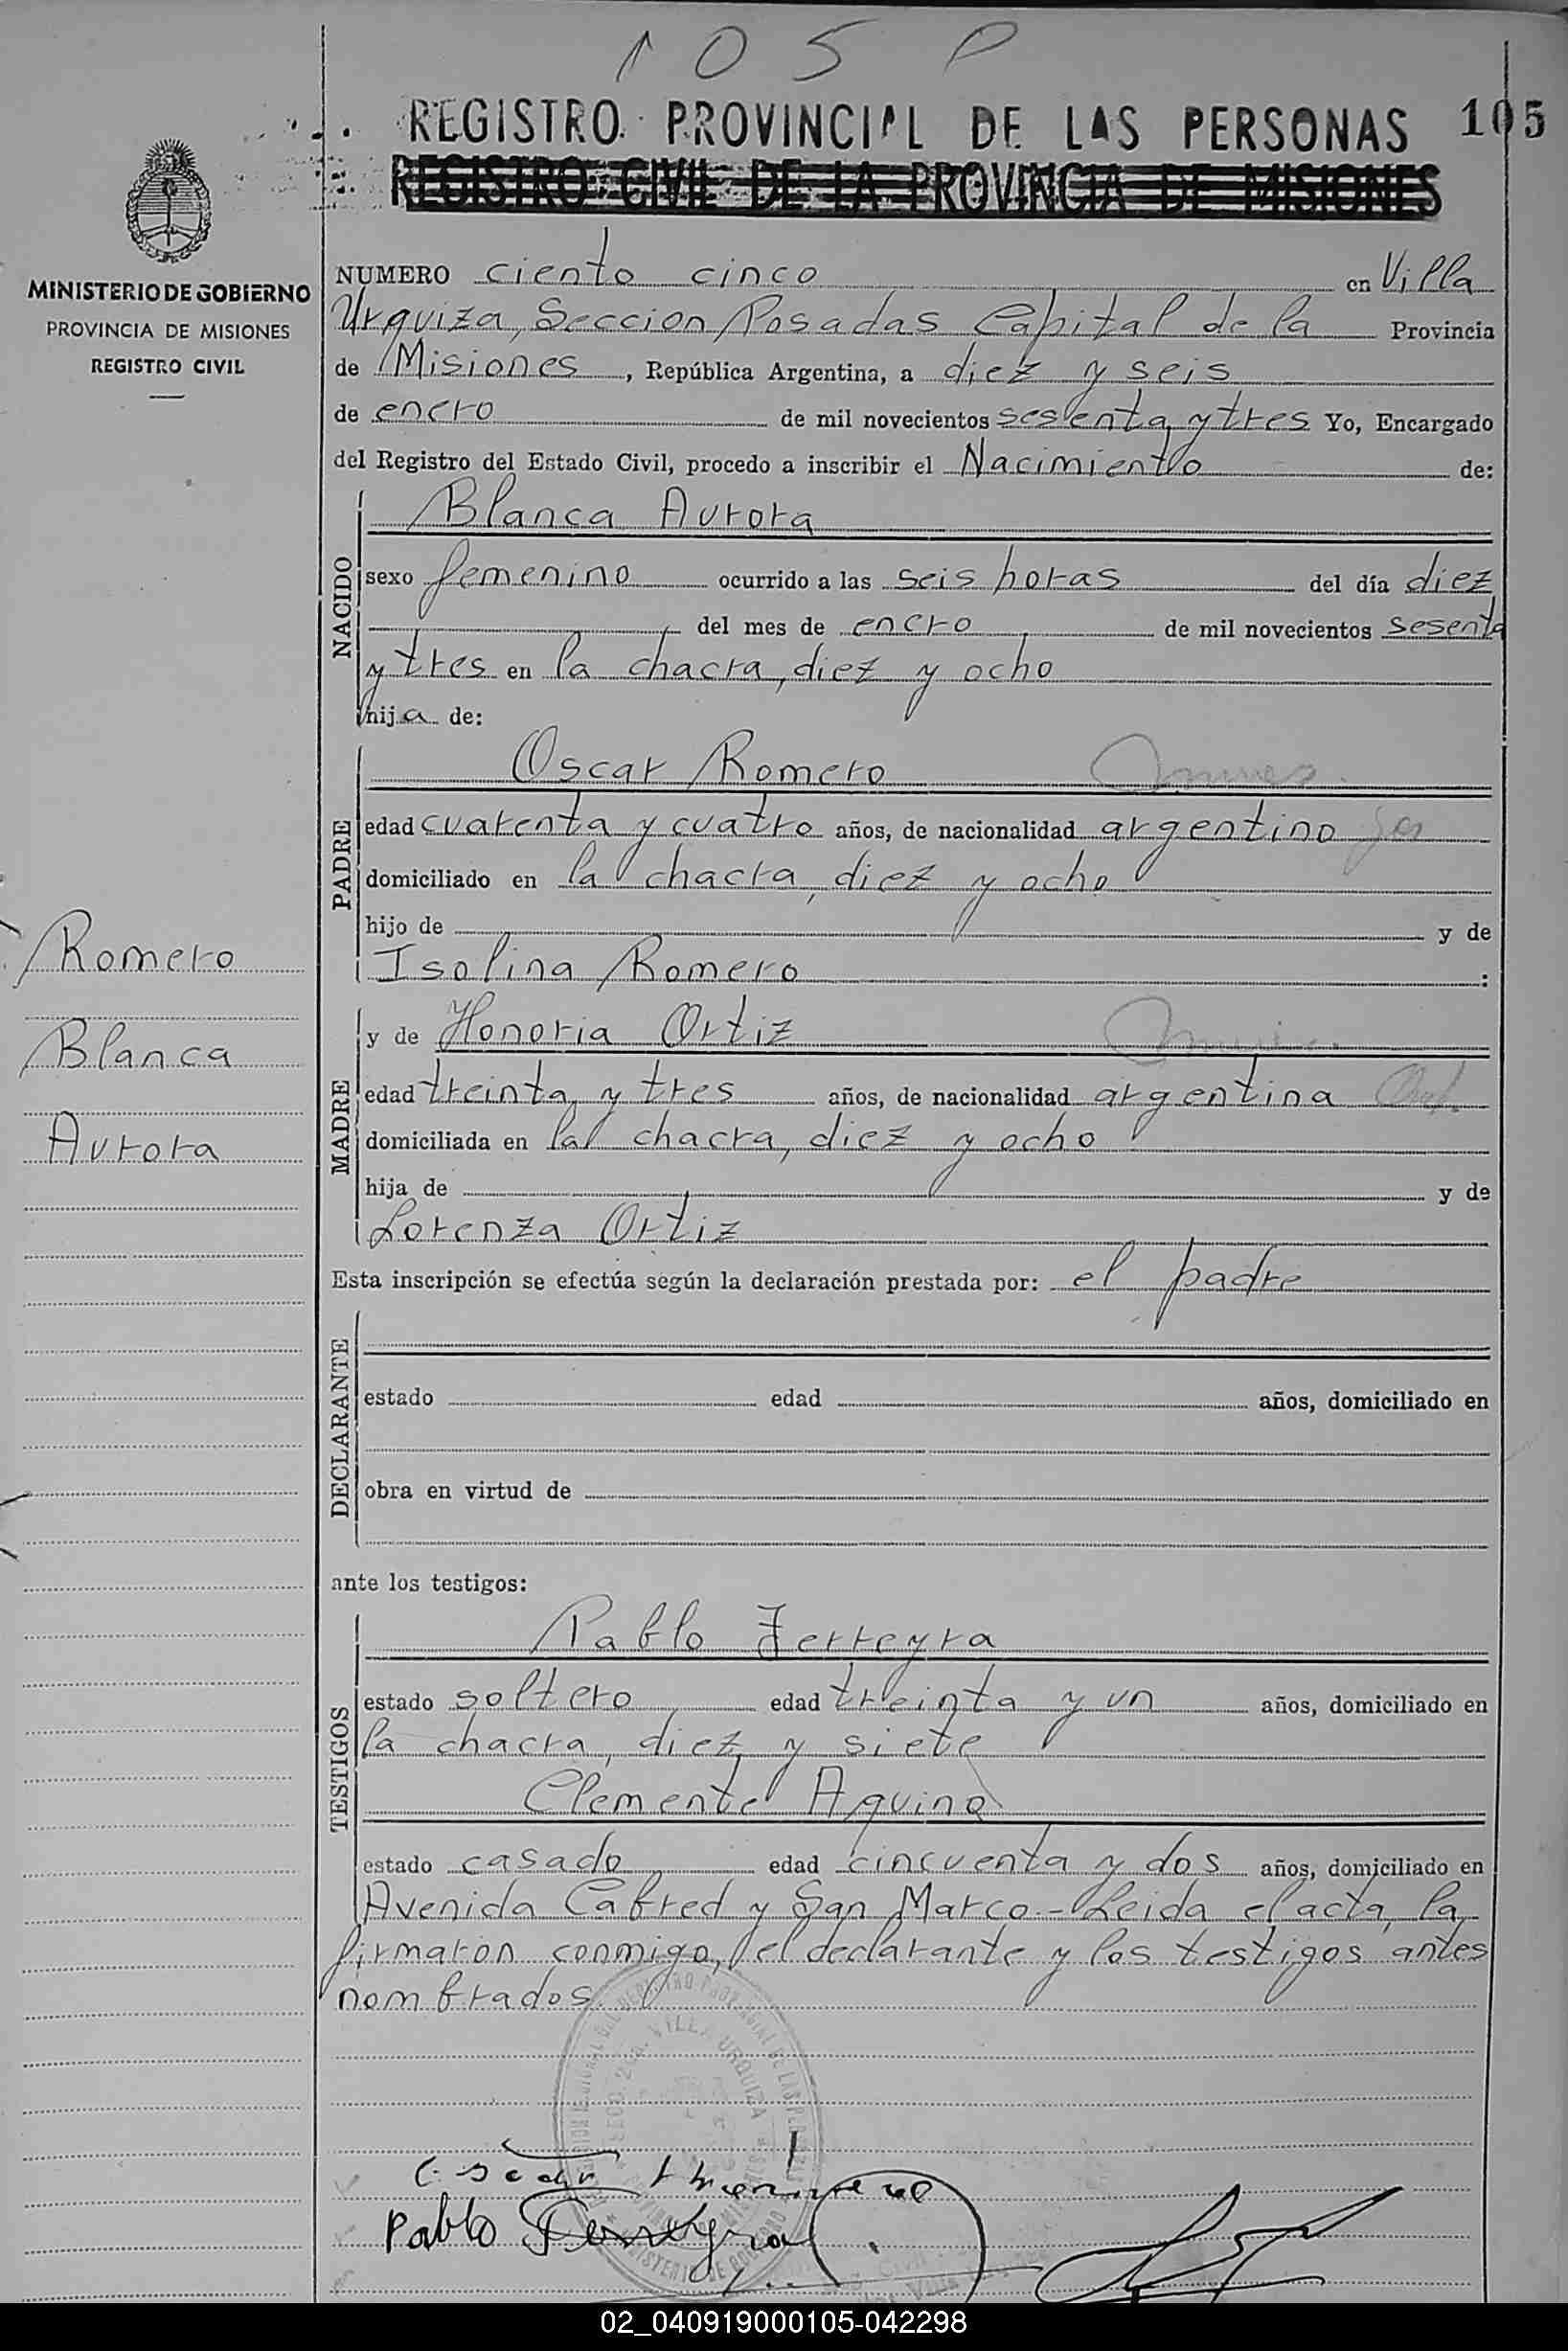 105 P
REGISTRO PROVINCIAL DE LAS PERSONAS 105
REGISTRO CIVIL DE LA PROVINCIA DE MISIONES
MINISTERIO DE GOBIERNO
PROVINCIA DE MISIONES
REGISTRO CIVIL
NUMERO ciento cinco en Villa
Urquiza, Seccion Posadas Capital de la Provincia
de Misiones, República Argentina, a diez y seis
de enero de mil novecientos sesenta y tres Yo, Encargado
del Registro del Estado Civil, procedo a inscribir el Nacimiento de:
NACIDO
Blanca Aurora
sexo femenino ocurrido a las seis horas del día diez
del mes de enero de mil novecientos sesenta
y tres en la chacra, diez y ocho
hija de:
PADRE
Oscar Romero
edad cuarenta y cuatro años, de nacionalidad argentino
domiciliado en la chacra, diez y ocho
hijo de y de
Isolina Romero :
Romero
Blanca
Aurora
MADRE
y de Honoria Ortiz
edad treinta y tres años, de nacionalidad argentina
domiciliada en la chacra, diez y ocho
hija de y de
Lorenza Ortiz
Esta inscripción se efectúa según la declaración prestada por: el padre
DECLARANTE
estado edad años, domiciliado en
obra en virtud de
ante los testigos:
TESTIGOS
Pablo Ferreyra
estado soltero edad treinta y un años, domiciliado en
la chacra, diez y siete
Clemente Aquino
estado casado edad cincuenta y dos años, domiciliado en
Avenida Cabred y San Marco.- Leida el acta, la
firmaron conmigo, el declarante y los testigos antes
nombrados.
VILLA URQUIZA
Pablo Ferreyra
02_040919000105-042298